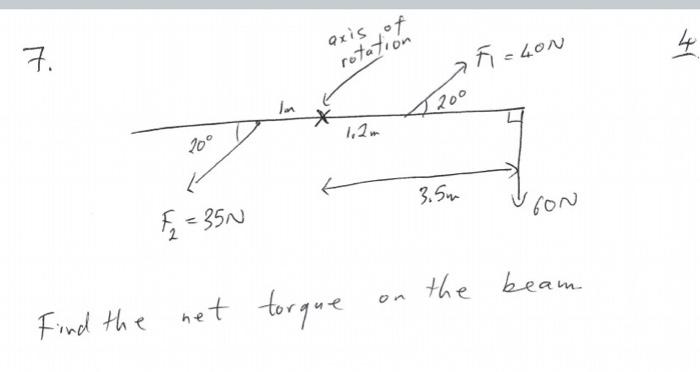 7.
axis of
rotation
F₁ = 40N
4
1m
20°
1.2m
20°
3.5m
60N
F₂ = 35N
Find the net torque on the beam